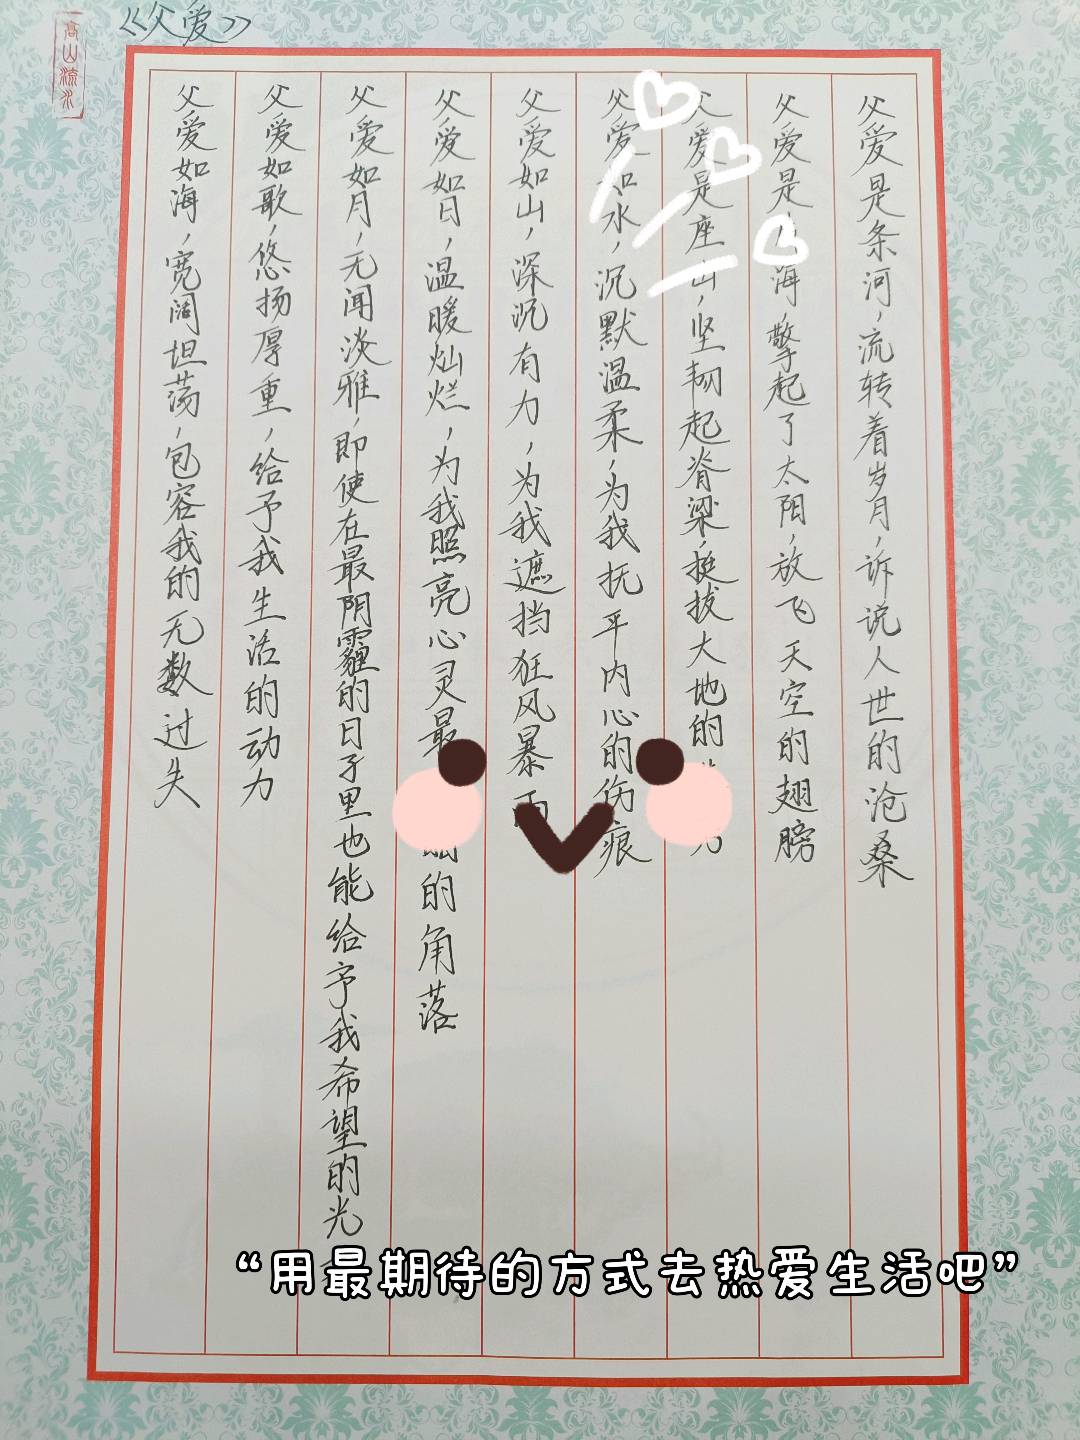 《父爱》
高山流水
父爱是条河，流转着岁月，诉说人世的沧桑
父爱是海，擎起了太阳，放飞天空的翅膀
父爱是座山，坚韧起脊梁，挺拔大地的
父爱如水，沉默温柔，为我抚平内心的伤痕
父爱如山，深沉有力，为我遮挡狂风暴雨
父爱如日，温暖灿烂，为我照亮心灵最的角落
父爱如月，无闻淡雅，即使在最阴霾的日子里也能给予我希望的光
父爱如歌，悠扬厚重，给予我生活的动力
父爱如海，宽阔坦荡，包容我的无数过失
“用最期待的方式去热爱生活吧”